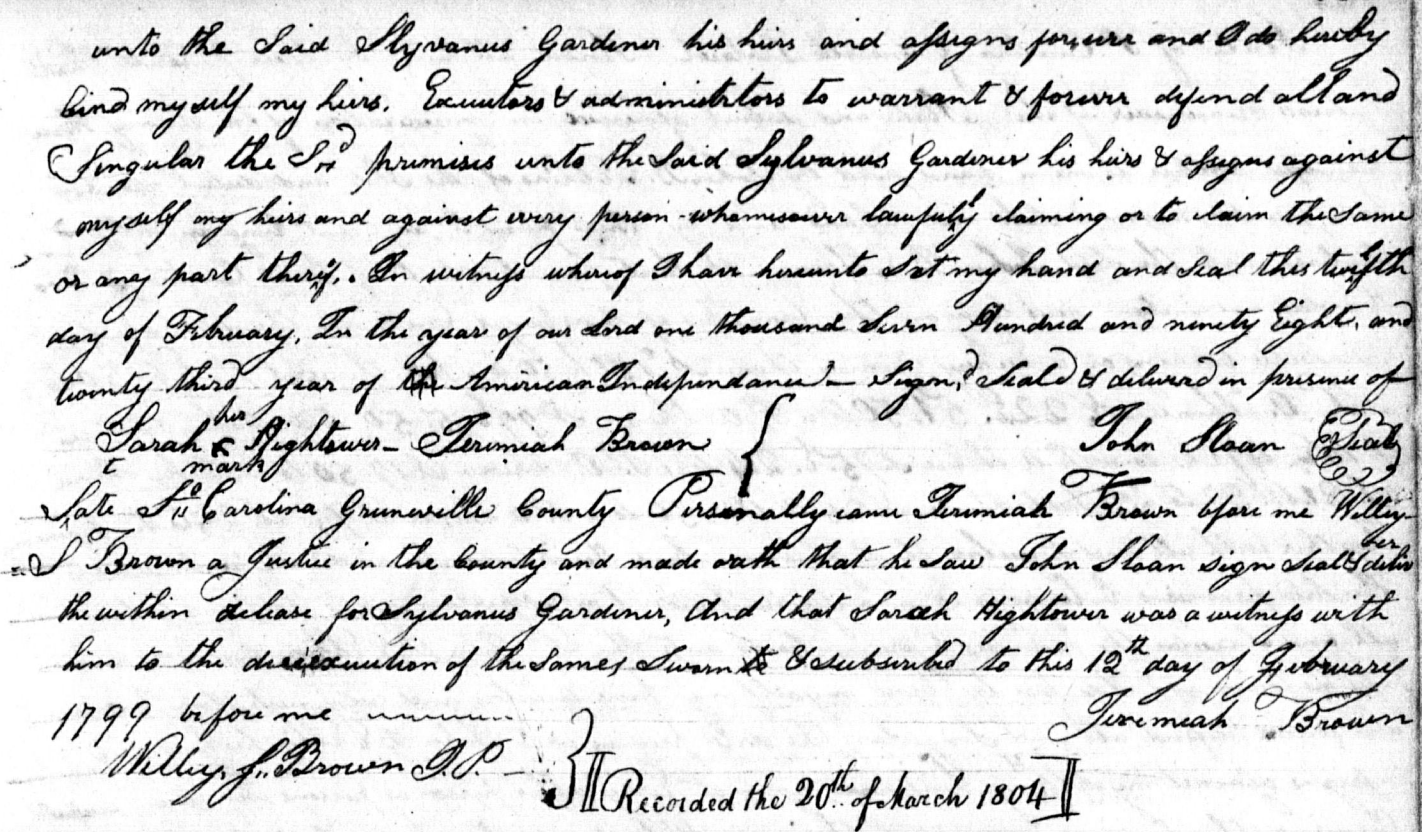 unto the Said Slyvanus Gardener his heirs and assigns forever and I do hereby
bind my self my heirs. Executors & administrtors to warrant & forever defend all and
Singular the Sd premises unto the Said Sylvanus Gardener his heirs & assigns against
my self my heirs and against every person whomsoever lawfully claiming or to claim the Same
or any part thereof. In witness whereof I have hereunto Set my hand and Seal this twelfth
day of February, In the year of our Lord one thousand Seven Hundred and ninety Eight, and
twenty third year of the American Independance Sign,d Seald & deliverd in presence of
Sarah her x mark Hightower Jeremiah Brown { John Sloan (Seal)
State So Carolina Greneville County Personally came Jeremiah Brown before me Willey
S Brown a Justice in the County and made oath that he Saw John Sloan sign Seal & deliver
the within release for Sylvanus Gardener, And that Sarah Hightower was a witness with
him to the execution of the Same, Sworn to & subscribed to this 12th day of February
1799 before me Jeremiah Brown
Willey S. Brown J.P.
Recorded the 20th of March 1804